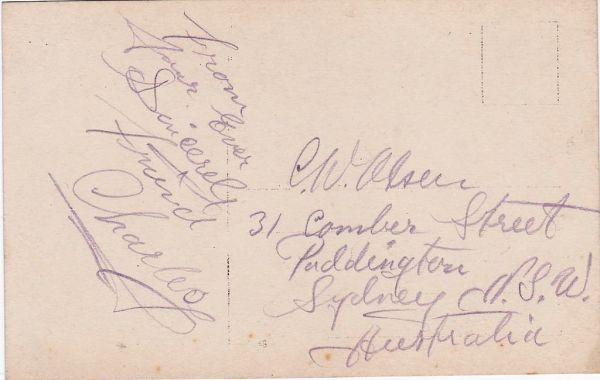 From Ever
Your
Sincerely
Friend
Charles
C. W. Olsen
31 Comber Street
Paddington
Sydney N.S.W.
Australia